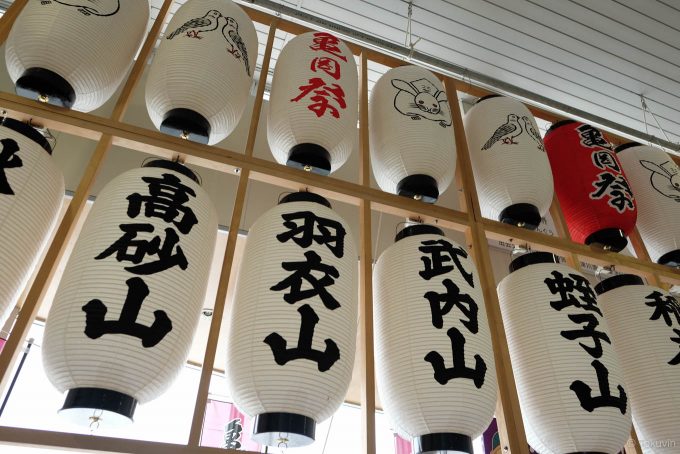 亀岡祭
亀岡祭
高砂山
羽衣山
武内山
蛭子山